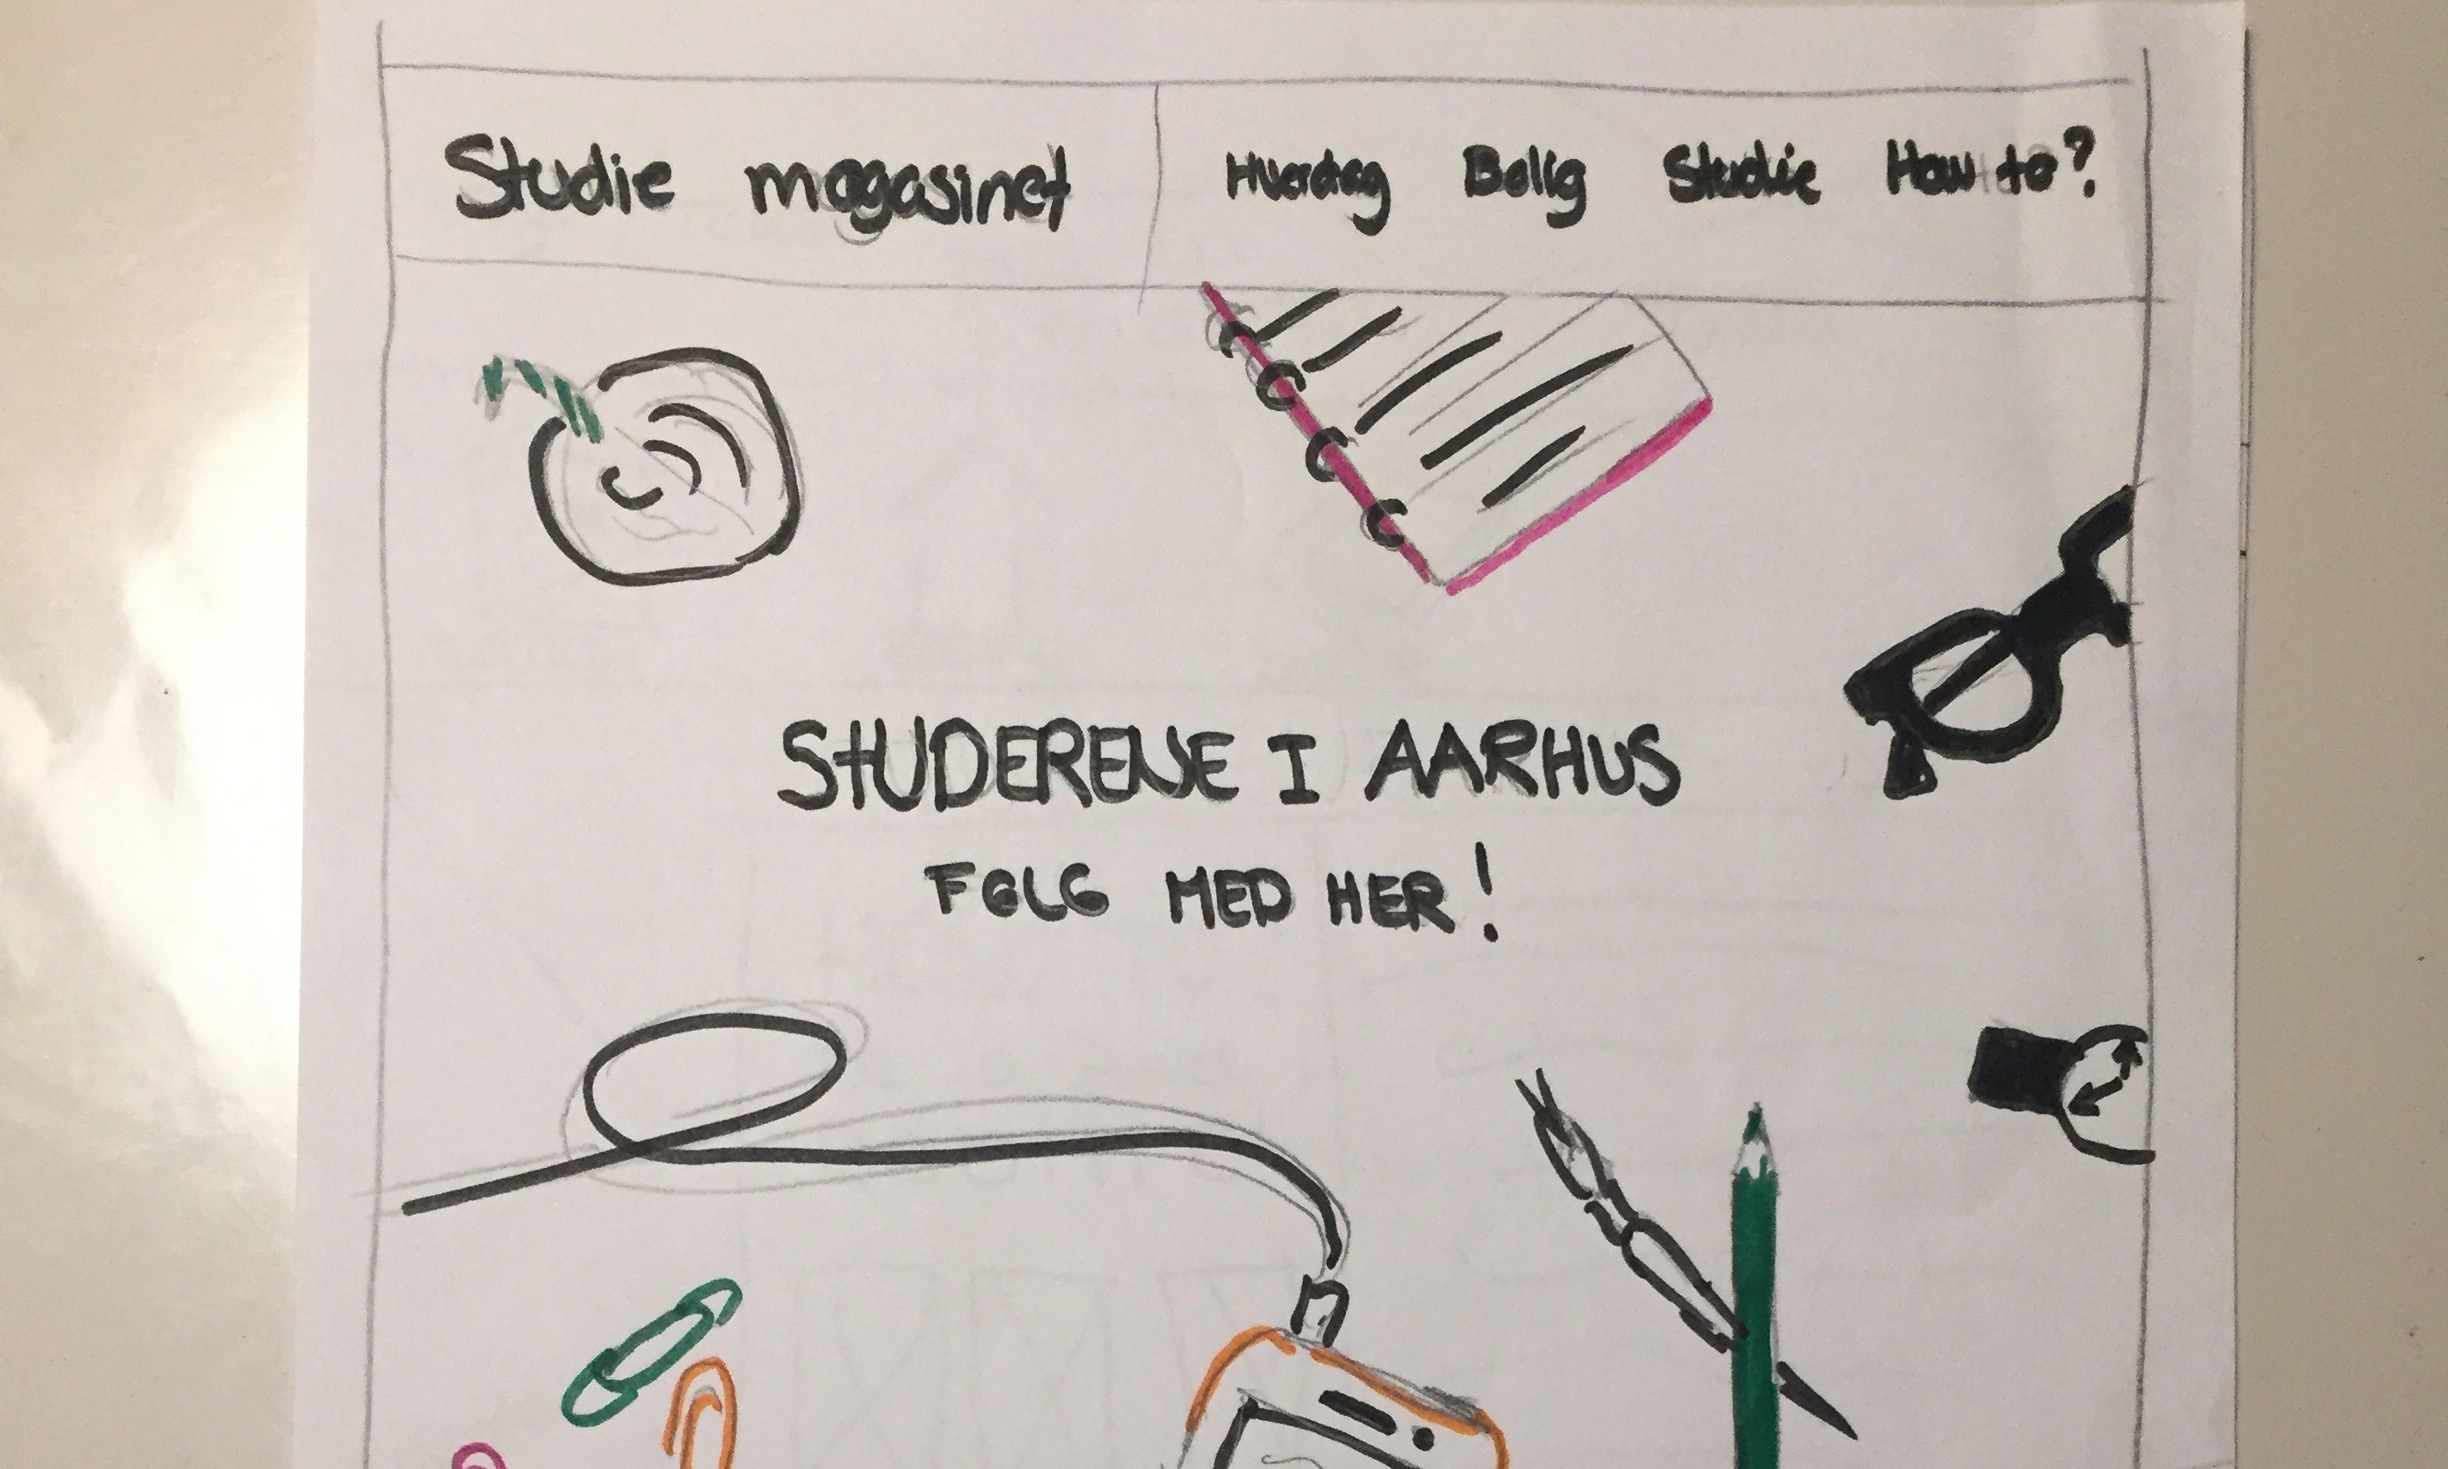 Studie magasinet
Hverdag Bolig Studie How to?
STUDERENE I AARHUS
FØLG MED HER!